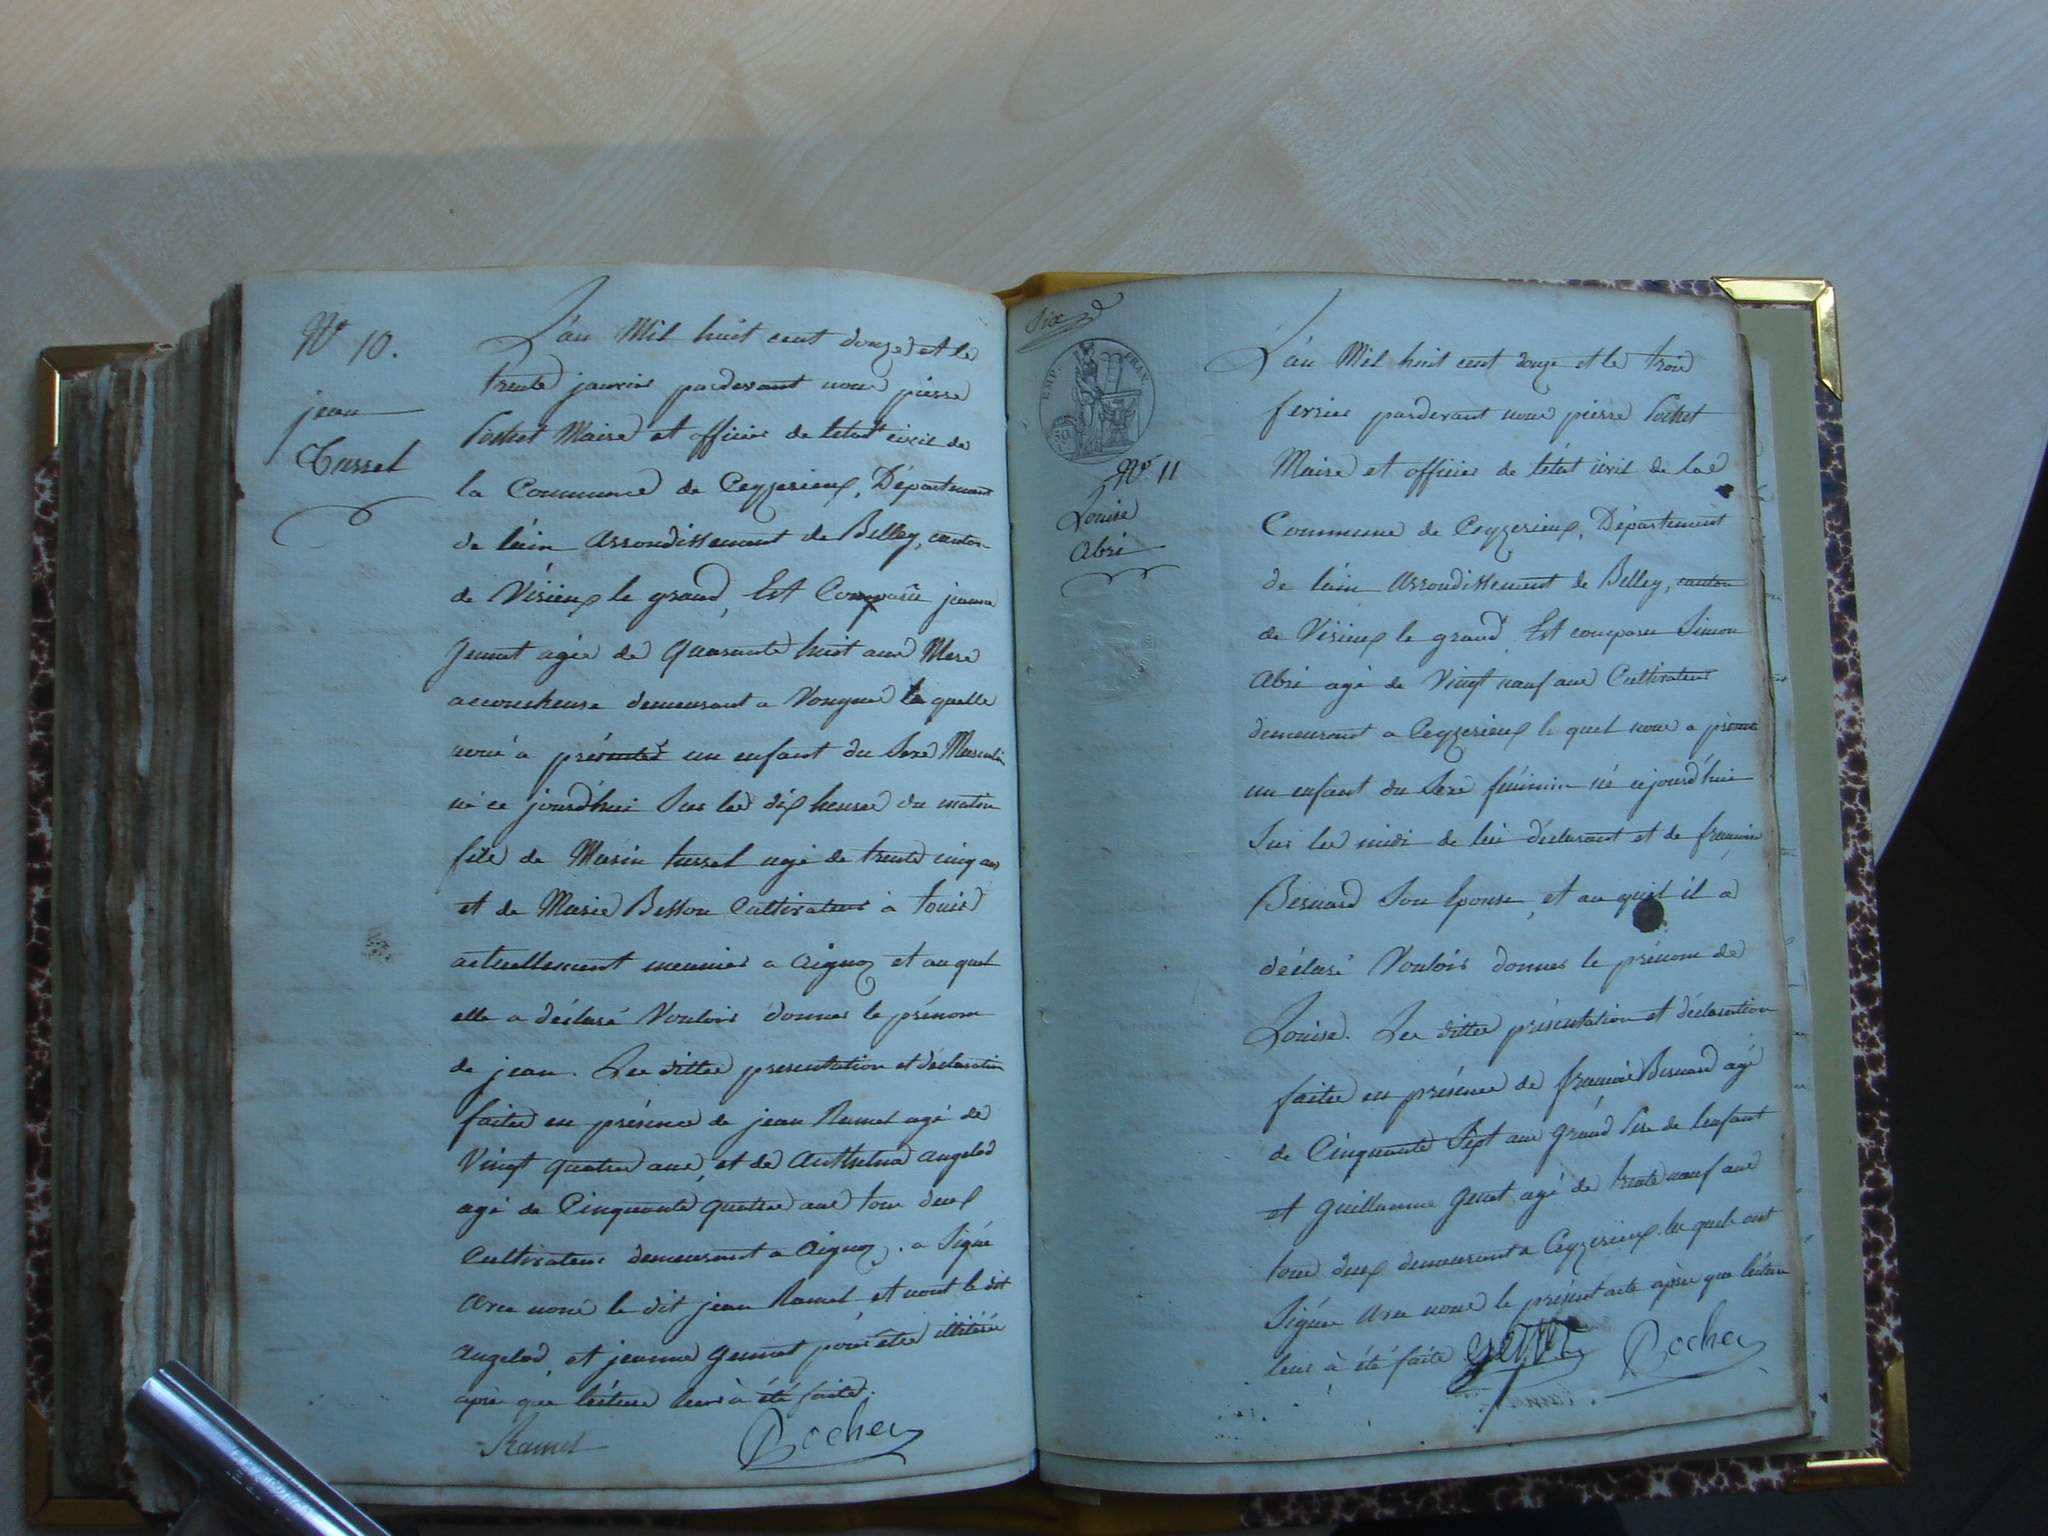 N° 10.
jean
Tussel
L'an Mil huit cent douze et le
trente janvier pardevant nous pierre
Pochet Maire et officier de létat civil de
la Commune de Ceyzerieux, Département
de lain arrondissement de Belley, canton
de Virieux le grand, Est Comparüe jeanne
gemet agée de quarante huit ans Mere
accoucheuse demeurant a Vongne la quelle
nous a présenté un enfant du Sexe Masculin
né ce jourd'hui Sur les dix heures du matin
fils de Marin tussel agé de trente cinq ans
et de Marie Besson Cultivateur à
actuellement meunier a aignoz et au quel
elle a déclaré Vouloir donner le prénom
de jean. Les dittes presentation et déclaration
faites en présence de jean Ramel agé de
Vingt quatre ans, et de anthelme angelod
agé de Cinquante quatre ans tous deux
Cultivateurs demeurant a aignoz. a Signé
avec nous le dit jean Ramel et non le dit
angelod, et jeanne gemet pour être illitéré
après que lécture leur à été faite.
Ramel Pochet
Six
EMP. FRAN.
50
N° 11
Louise
abri
L'an Mil huit cent douze et le trois
fevrier pardevant nous pierre Pochet
Maire et officier de létat civil de la
Commune de Ceyzerieux, Département
de lain arrondissement de Belley, canton
de Virieux le grand Est comparu Simon
abri agé de Vingt neuf ans Cultivateur
demeurant a Ceyzerieux le quel nous a présenté
un enfant du Sexe féminin né cejourd'hui
Sur les midi de lui déclarant et de
Bernard Son Epouse, et au quel il à
déclaré Vouloir donner le prénom de
Louise. Les dittes présentation et déclaration
faites en présence de françois Bernard agé
de Cinquante Sept ans grand Pere de lenfant
et guillaume genet agé de trente neuf ans
tous deux demeurant a Ceyzerieux les quels ont
Signés avec nous le présent acte après que lécture
leur à été faite genet Pochet